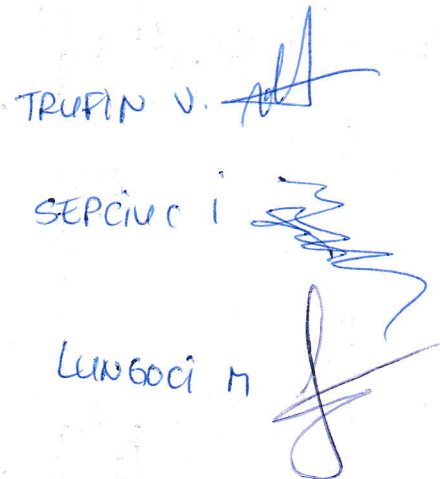 TRUFIN V.
SEPCIUC I
LUNGOCI M